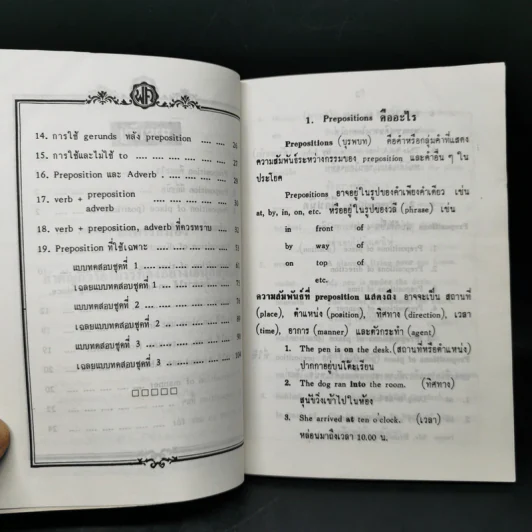 14. การใช้ gerunds หลัง preposition .... .... 26
15. การใช้และไม่ใช้ to .... .... .... .... .... 27
16. Preposition และ Adverb . .... .... .... 28
17. verb + preposition
adverb .... .... .... .... 30
18. verb + preposition, adverb ที่ควรทราบ .... 32
19. Preposition ที่ใช้เฉพาะ .... .... .... .... 51
แบบทดสอบชุดที่ 1 .... .... .... .... 61
เฉลยแบบทดสอบชุดที่ 1 .... .... .... 71
แบบทดสอบชุดที่ 2 .... .... .... ....
เฉลยแบบทดสอบชุดที่ 2 .... .... ....
แบบทดสอบชุดที่ 3 .... .... .... ....
เฉลยแบบทดสอบชุดที่ 3 .... .... .... 104
□□□□□
1. Prepositions คืออะไร
Prepositions (บุรพบท) คือคำหรือกลุ่มคำที่แสดง
ความสัมพันธ์ระหว่างกรรมของ preposition และคำอื่น ๆ ใน
ประโยค
Prepositions อาจอยู่ในรูปของคำเพียงคำเดียว เช่น
at, by, in, on, etc. หรืออยู่ในรูปของวลี (phrase) เช่น
in front of
by way of
on top of
etc.
ความสัมพันธ์ที่ preposition แสดงถึง อาจจะเป็น สถานที่
(place), ตำแหน่ง (position), ทิศทาง (direction), เวลา
(time), อาการ (manner) และตัวกระทำ (agent)
1. The pen is on the desk. (สถานที่หรือตำแหน่ง)
ปากกาอยู่บนโต๊ะเรียน
2. The dog ran into the room. (ทิศทาง)
สุนัขวิ่งเข้าไปในห้อง
3. She arrived at ten o'clock. (เวลา)
หล่อนมาถึงเวลา 10.00 น.